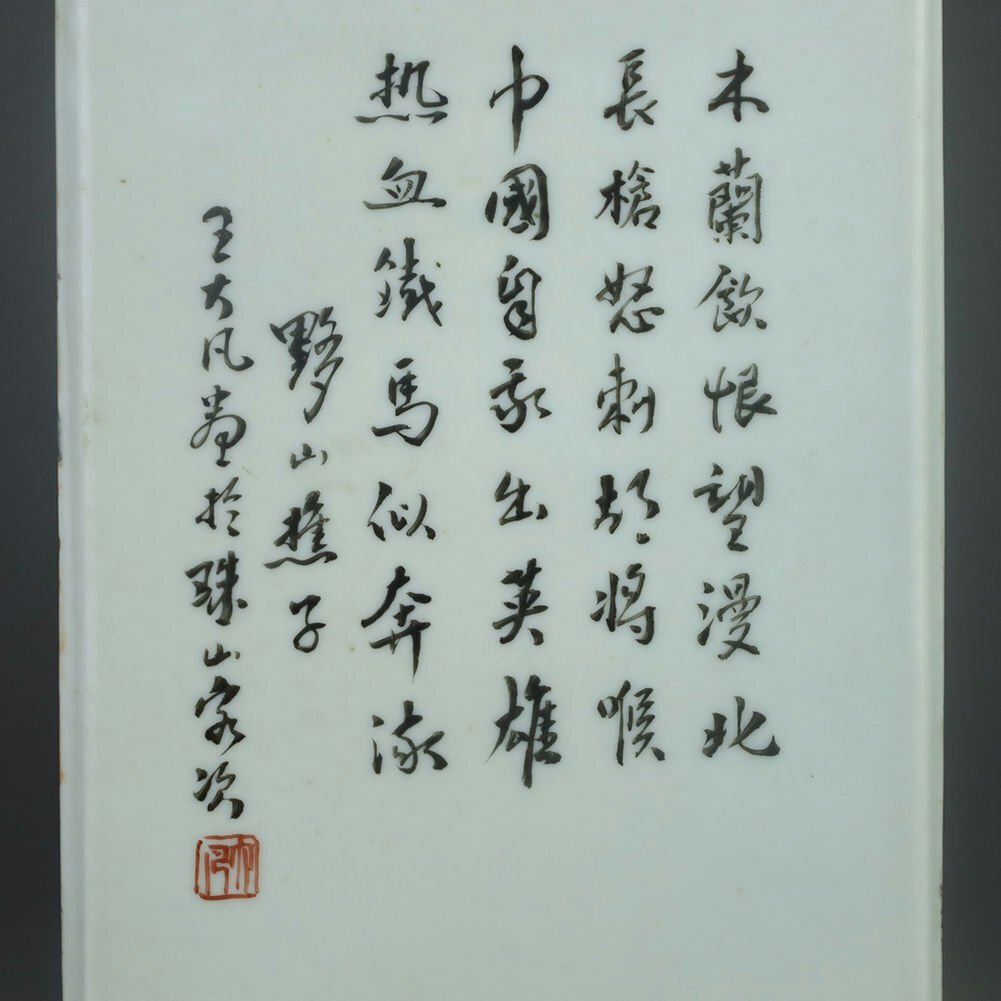 木蘭飲恨望漫北
長槍怒刺胡將喉
巾國自出英雄
热血鐵馬似奔流
黟山樵子
王大凡畫於珠山客次